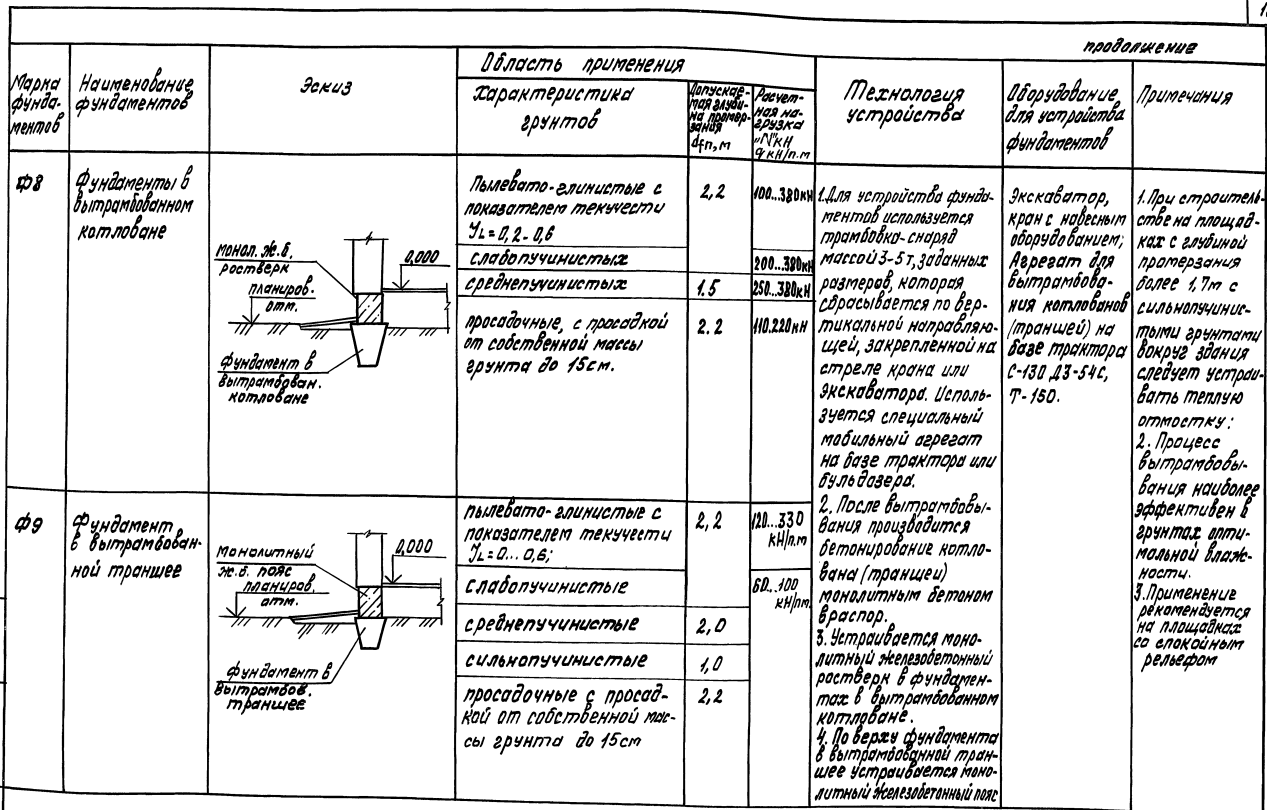 продолжение
Марка
фунда-
ментов
Наименование
фундаментов
Эскиз
Область применения
Характеристика
грунтов
Допускае-
мая глуби-
на промер-
зания
dfn, м
Расчет-
ная на-
грузка
"N" кН
q кН/п.м
Технология
устройства
Оборудование
для устройства
фундаментов
Примечания
Ф8
Фундаменты в
вытрамбованном
котловане
монол. ж.б.
ростверк
0,000
планиров.
отм.
фундамент в
вытрамбован.
котловане
Пылевато-глинистые с
показателем текучести
JL = 0,2-0,6
2,2
100...380кН
слабопучинистых
200...380кН
среднепучинистых
1.5
250...380кН
просадочные, с просадкой
от собственной массы
грунта до 15см.
2.2
110.220кН
1.Для устройства фунда-
ментов используется
трамбовка-снаряд
массой 3-5т, заданных
размеров, которая
сбрасывается по вер-
тикальной направляю-
щей, закрепленной на
стреле крана или
экскаватора. Исполь-
зуется специальный
мобильный агрегат
на базе трактора или
бульдозера.
2. После вытрамбовы-
вания производится
бетонирование котло-
вана (траншеи)
монолитным бетоном
враспор.
3. Устраивается моно-
литный железобетонный
ростверк в фундамен-
тах в вытрамбованном
котловане.
4. По верху фундамента
в вытрамбованной тран-
шее устраивается моно-
литный железобетонный пояс
Экскаватор,
кран с навесным
оборудованием;
Агрегат для
вытрамбова-
ния котлованов
(траншей) на
базе трактора
С-130 ДЗ-54С,
Т-150.
1.При строитель-
стве на площад-
ках с глубиной
промерзания
более 1,7м с
сильнопучинис-
тыми грунтами
вокруг здания
следует устраи-
вать теплую
отмостку;
2. Процесс
вытрамбовы-
вания наиболее
эффективен в
грунтах опти-
мальной влаж-
ности.
3.Применение
рекомендуется
на площадках
со спокойным
рельефом
Ф9
Фундамент
в вытрамбован-
ной траншее
Монолитный
ж.б. пояс
0,000
планиров.
отм.
фундамент в
вытрамбов.
траншее
пылевато-глинистые с
показателем текучести
JL = 0... 0,6;
2,2
120...330
кН/п.м
слабопучинистые
60...100
кН/пм.
среднепучинистые
2,0
сильнопучинистые
1,0
просадочные с просад-
кой от собственной мас-
сы грунта до 15см
2,2